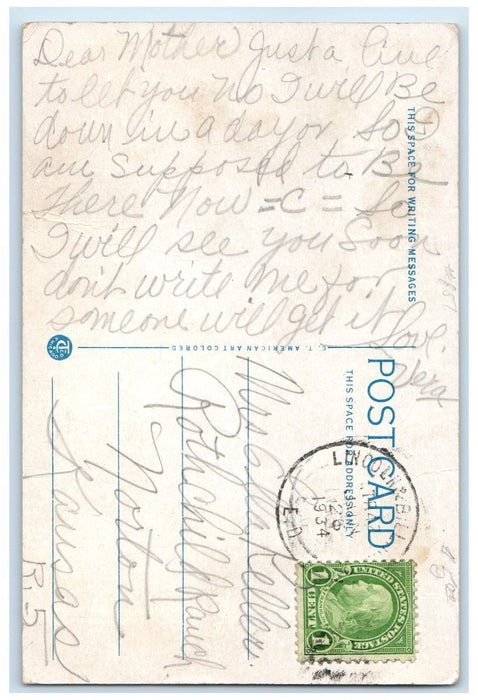 Dear Mother Just a line
to let you No I will Be
down in a day or So
am Supposed to Be
there Now =C= So
I will see you Soon
dont write me for
someone will get it
Love.
Vera
THIS SPACE FOR WRITING MESSAGES
C. T. AMERICAN ART COLORED
POST CARD
THIS SPACE FOR ADDRESS ONLY
Mrs Ella Keller
Rothchild Ranch
Norton
Kansas
R.5
LINCOLN, NEBR.
1934
UNITED STATES POSTAGE
1 CENT 1